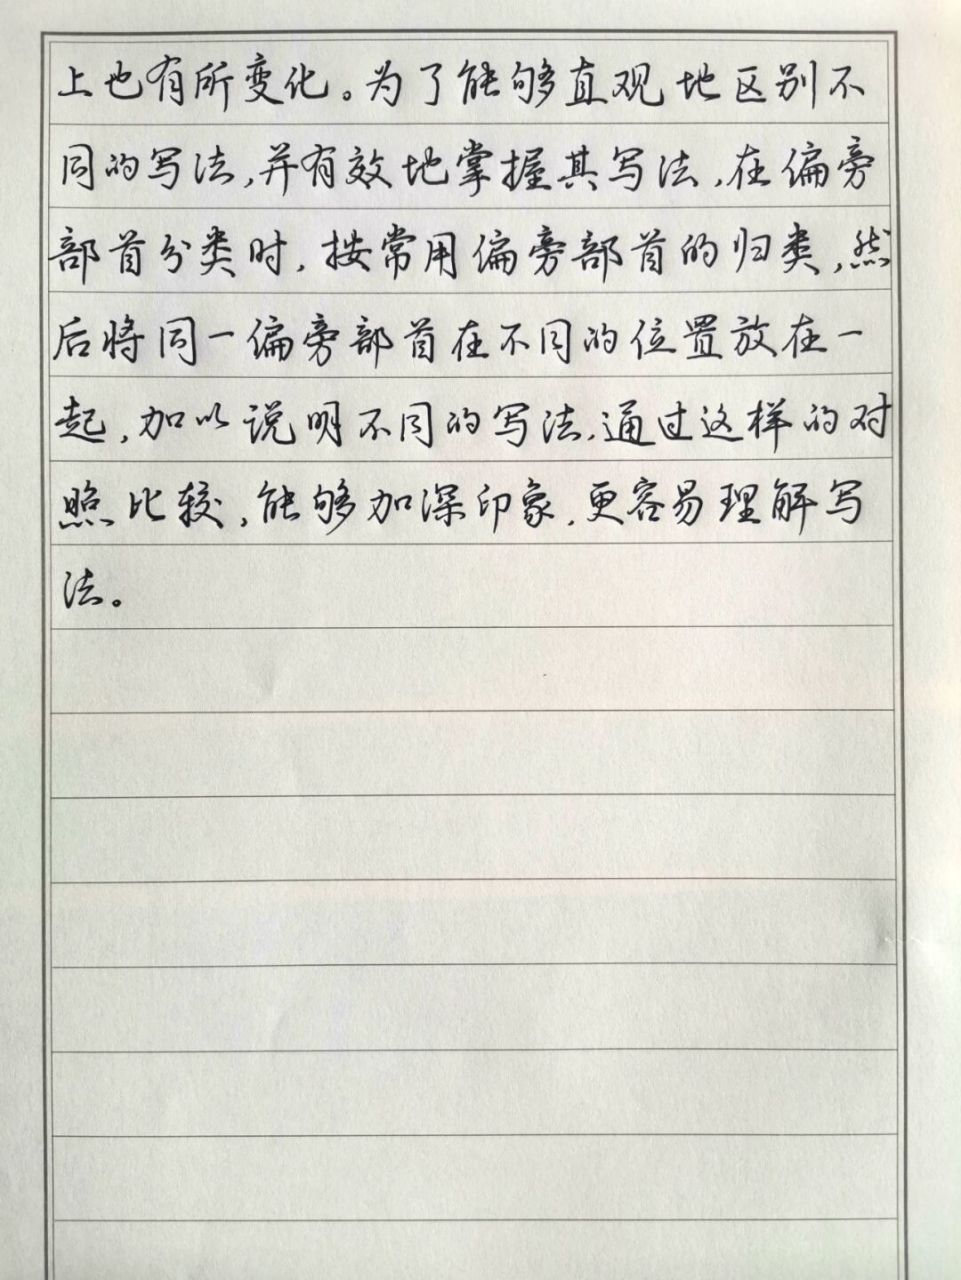 上也有所变化。为了能够直观地区别不
同的写法,并有效地掌握其写法,在偏旁
部首分类时,按常用偏旁部首的归类,然
后将同一偏旁部首在不同的位置放在一
起,加以说明不同的写法,通过这样的对
照比较,能够加深印象,更容易理解写
法。